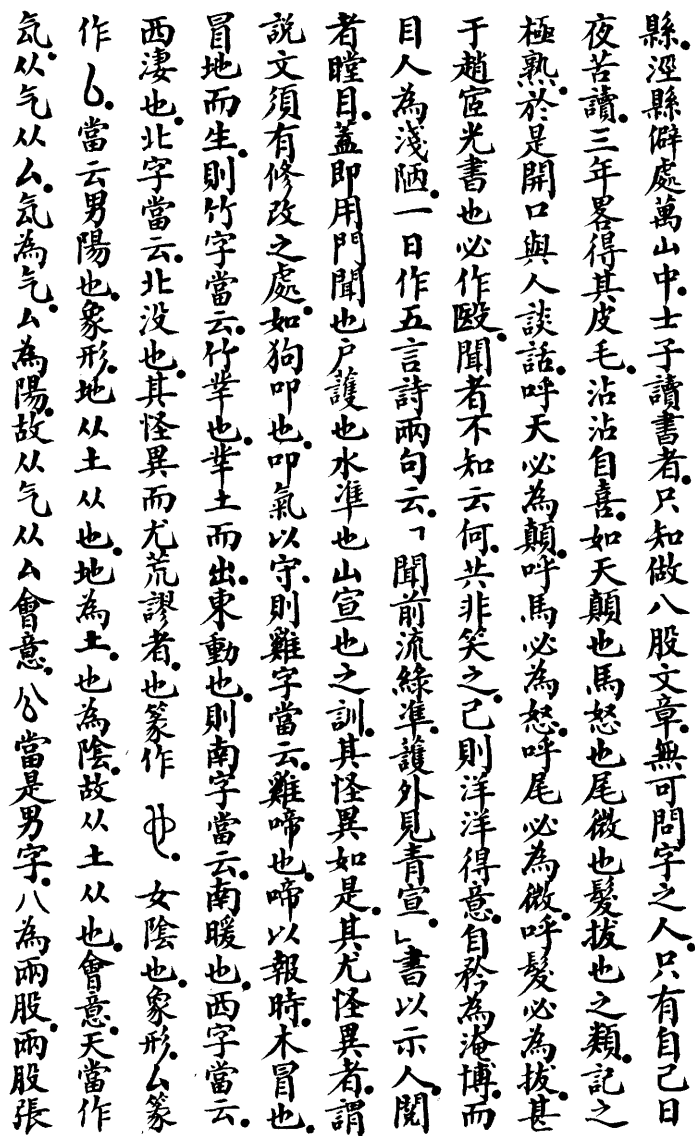 縣。涇縣僻處萬山中。士子讀書者。只知做八股文章。無可問字之人。只有自己日
夜苦讀。三年畧得其皮毛。沾沾自喜。如天顛也馬怒也尾微也髮拔也之類。記之
極熟。於是開口與人談話。呼天必為顛。呼馬必為怒。呼尾必為微。呼髮必為拔。甚
于趙宧光書也必作殹。聞者不知云何。共非笑之。己則洋洋得意。自矜為淹博。而
目人為淺陋。一日作五言詩兩句云。「聞前流綠準。護外見青宣。」書以示人。閱
者瞠目。蓋即用門聞也户護也水準也山宣也之訓。其怪異如是。其尤怪異者。謂
説文須有修改之處。如狗叩也。叩氣以守。則雞字當云。雞啼也。啼以報時。木冒也。
冒地而生。則竹字當云。竹茻也。茻土而出。東動也。則南字當云。南暖也。西字當云。
西淒也。北字當云。北没也。其怪異而尤荒謬者。也篆作 。女陰也。象形。厶篆
作 。當云男陽也。象形。地从土从也。地為土。也為陰。故从土从也。會意。天當作
気。从气从厶。気為气。厶為陽。故从气从厶會意。公當是男字。八為兩股。兩股張